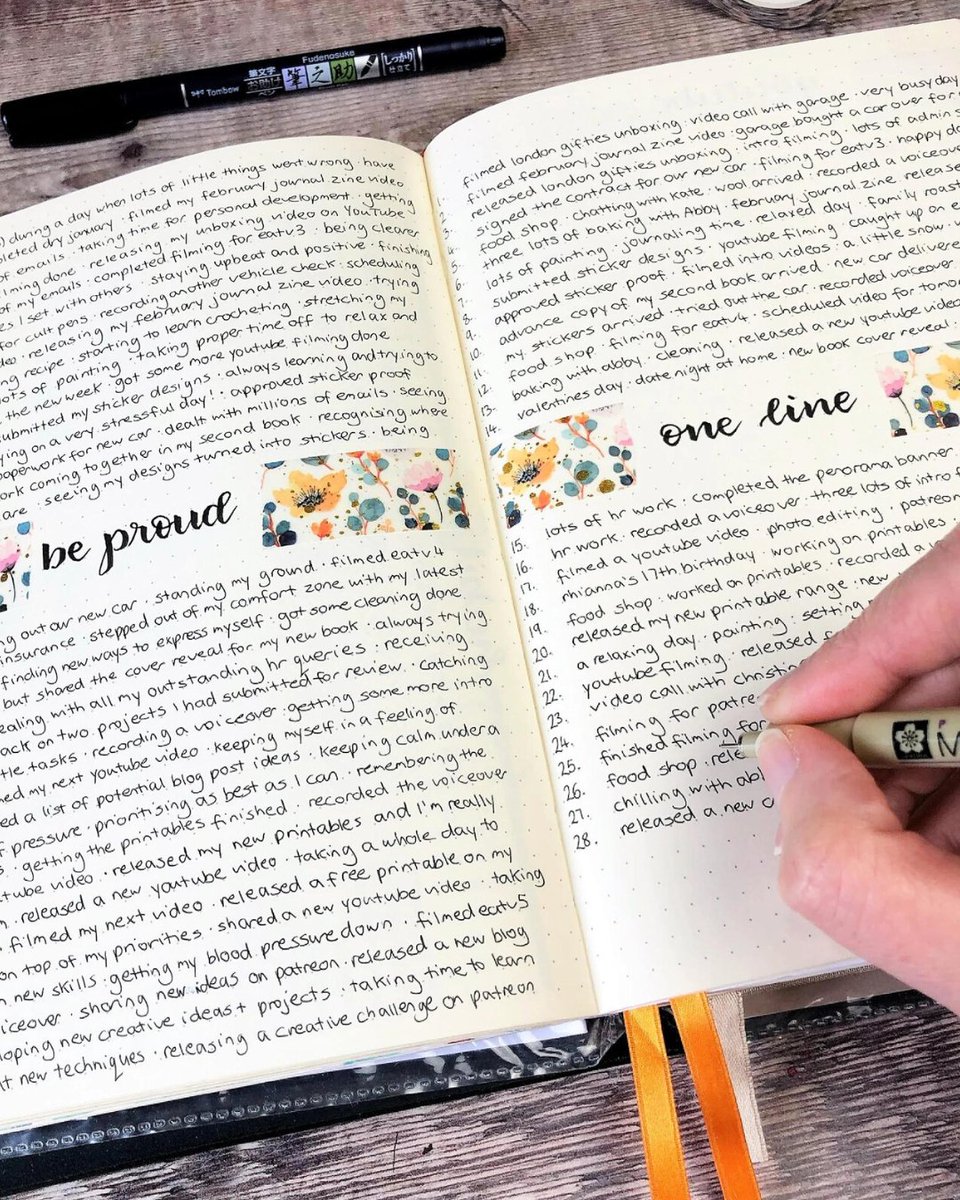 Fudenosuke
Tombow
筆文字
お助け
ペン
筆之助
しっかり
仕立て
during a day when lots of little things went wrong · have
dry january · filmed my february journal zine video
of emails · taking time for personal development · getting
filming done · releasing my unboxing video on YouTube
of my emails · completed filming for eatv3 · being clearer
I set with others · staying upbeat and positive · finishing
for cult pens · recording another vehicle check · scheduling
releasing my february journal zine video · trying
recipe · starting to learn crocheting · stretching my
lots of painting · taking proper time off to relax and
the new week · got some more youtube filming done
submitted my sticker designs · always learning and trying to
on a very stressful day! · approved sticker proof
paperwork for new car · dealt with millions of emails · seeing
coming together in my second book · recognising where
are seeing my designs turned into stickers · being
be proud
out our new car · standing my ground · filmed eatv4
insurance · stepped out of my comfort zone with my latest
finding new ways to express myself · got some cleaning done
but shared the cover reveal for my new book · always trying
with all my outstanding hr queries · receiving
on two projects I had submitted for review · catching
tasks · recording a voiceover · getting some more intro
my next youtube video · keeping myself in a feeling of
a list of potential blog post ideas · keeping calm under a
pressure · prioritising as best as I can · remembering the
getting the printables finished · recorded the voiceover
video · released my new printables and I'm really
released a new youtube video · taking a whole day to
filmed my next video · released a free printable on my
on top of my priorities · shared a new youtube video · taking
new skills · getting my blood pressure down · filmed eatv5
sharing new ideas on patreon · released a new blog
new creative ideas + projects · taking time to learn
new techniques · releasing a creative challenge on patreon
filmed london gifties unboxing · video call with garage · very busy day
2. filmed february journal zine video · garage bought a car over for
3. released london gifties unboxing · intro filming · lots of admin
4. signed the contract for our new car · filming for eatv3 · happy
5. food shop · chatting with kate · wool arrived · recorded a voiceover
6. three lots of baking with Abby · february journal zine
7. lots of painting · journaling time · relaxed day · family roast
8. submitted sticker designs · youtube filming · caught up on
9. approved sticker proof · filmed intro videos · a little snow
10. advance copy of my second book arrived · new car
11. my stickers arrived · tried out the car · recorded voiceover
12. food shop · filming for eatv4 · scheduled video for
13. baking with abby · cleaning · released a new youtube video
14. valentines day · date night at home · new book cover reveal
one line
15. lots of hr work · completed the panorama banner
16. hr work · recorded a voiceover · three lots of intro
17. filmed a youtube video · photo editing · patreon
18. rhianna's 17th birthday · working on printables
19. food shop · worked on printables · recorded a
20. released my new printable range · new
21. a relaxing day · painting
22. youtube filming · released
23. video call with
24. filming for
25. finished filming for
26. food shop
27. chilling with
28. released a new